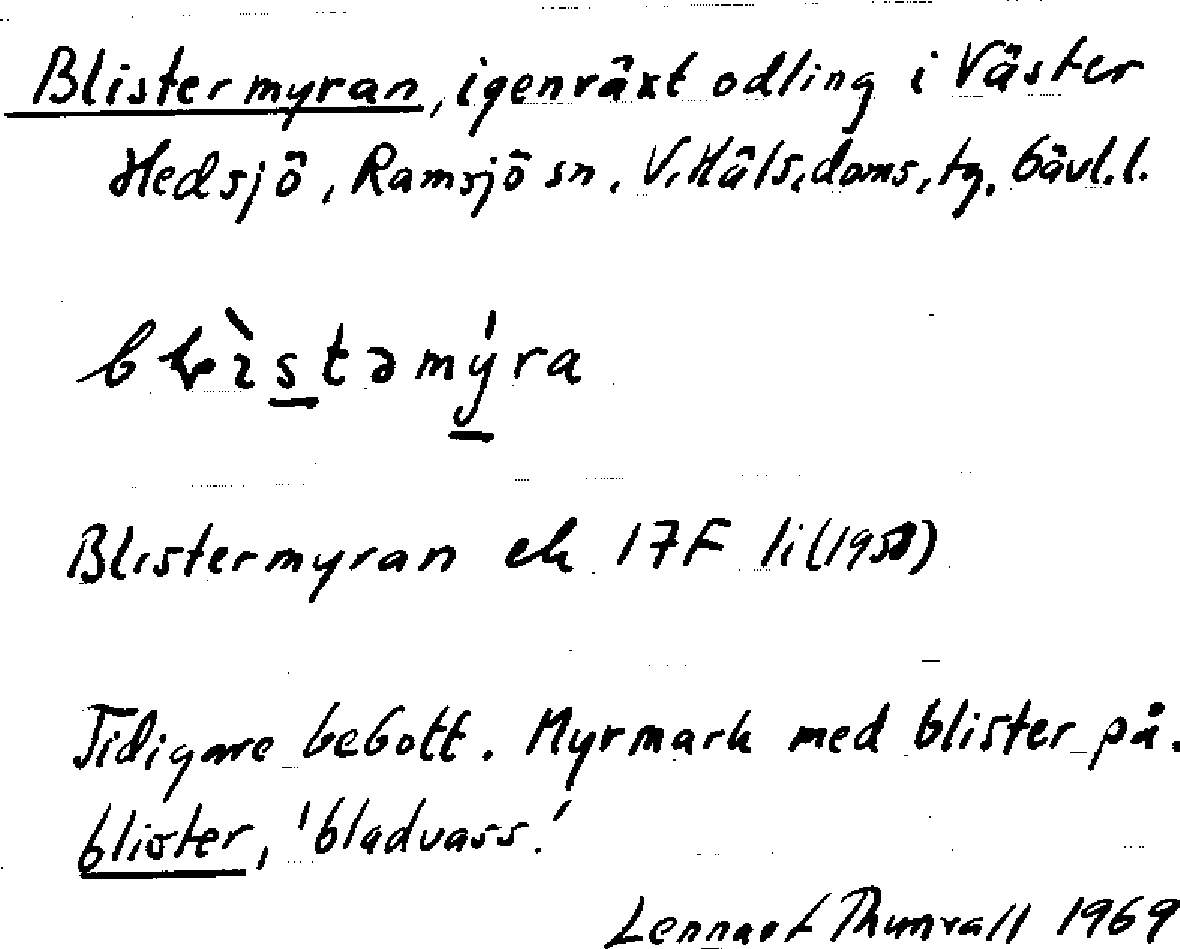 Blistermyran, igenväxt odling i Väster
Hedsjö, Ramsjö sn. V. Häls. doms. tg. Gävl. l.
Blistermyran ek 17F li(1950)
Tidigare bebott. Myrmark med blister på.
blister, 'bladvass.'
Lennart Thunvall 1969